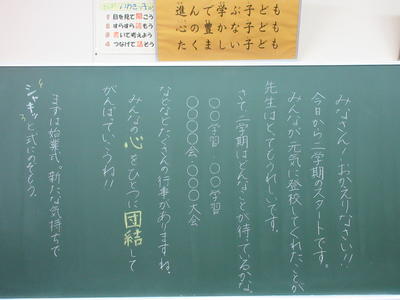 1 目を見て聞こう
2 すらすら読もう
3 書いて考えよう
4 つなげて話そう
進んで学ぶ子ども
心の豊かな子ども
たくましい子ども
みなさん！おかえりなさい!!
今日から二学期のスタートです。
みんなが元気に登校してくれたことが
先生はとってもうれしいです。
さて二学期はどんなことが待っているかな。
〇〇学習・〇〇学習
〇〇〇〇会 〇〇〇〇大会
などなどたくさんの行事がありますね。
みんなの心をひとつに団結して
がんばっていこうね!!
まずは始業式。新たな気持ちで
シャキッと式にのぞもう。